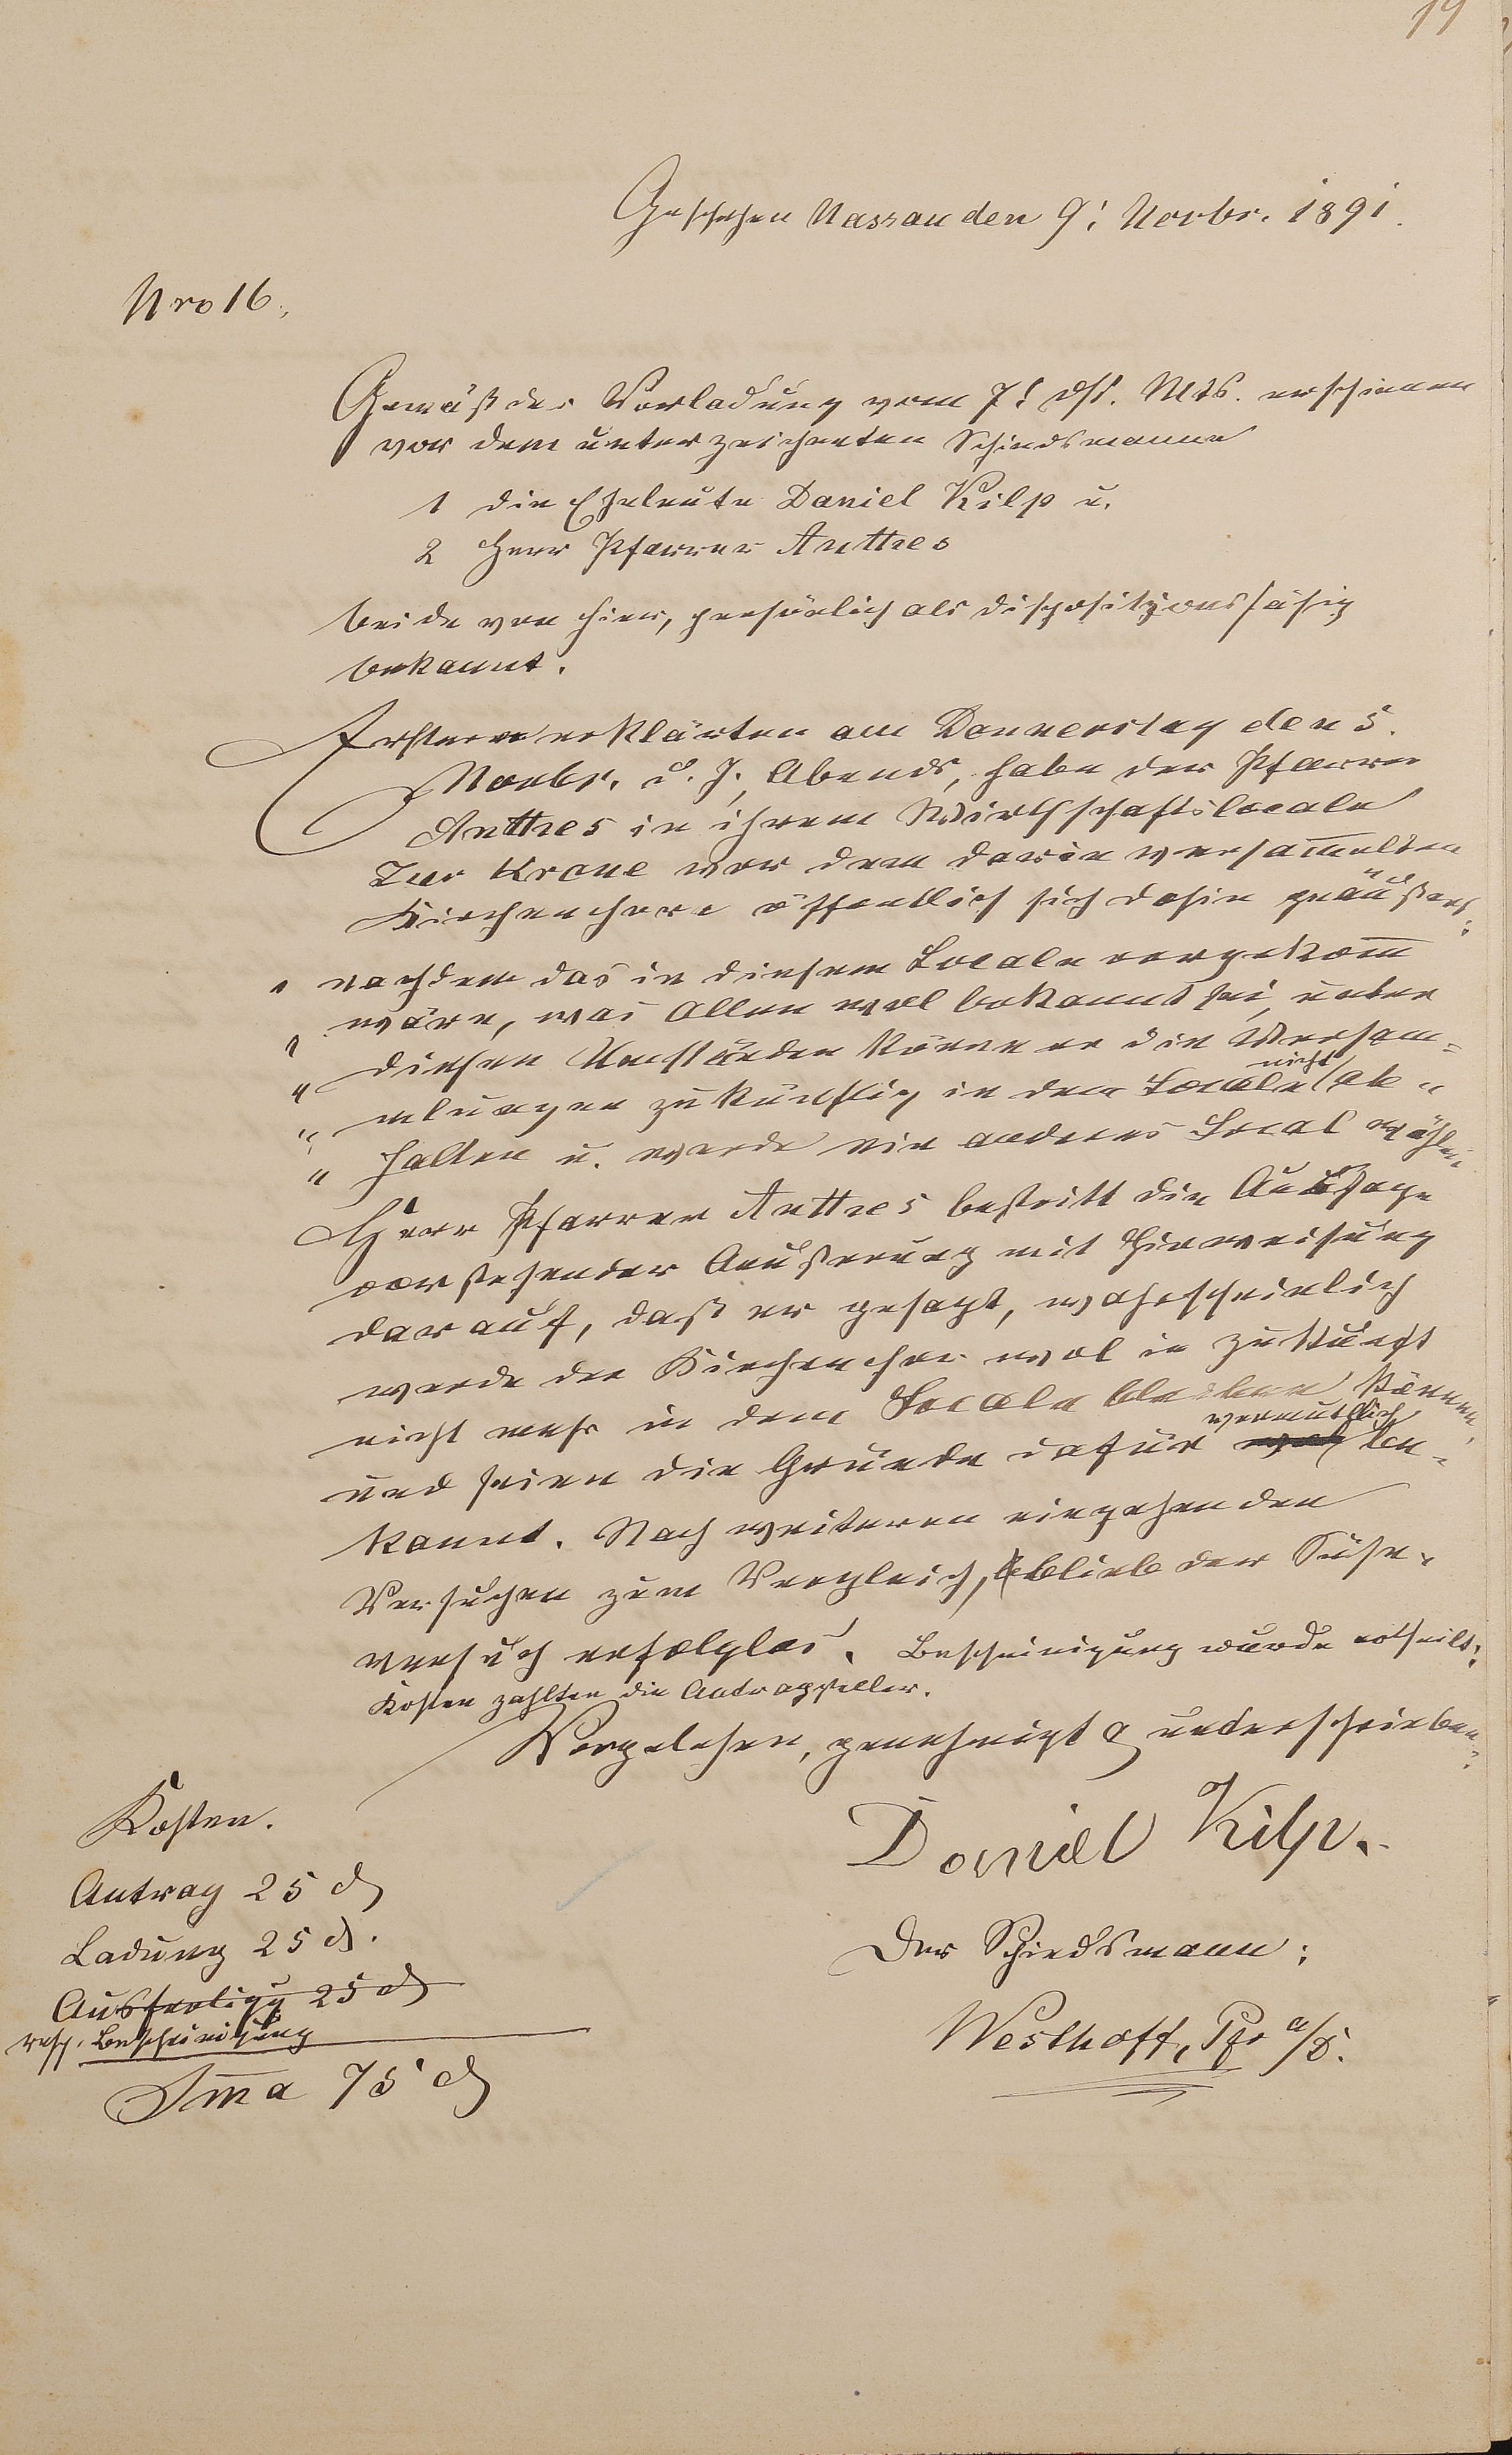 19
Geschehen Nassau den 9t Novbr. 1891.
Nro 16.
Gemäß der Vorladung vom 7t dss. Mts. erschienen
vor dem unterzeichneten Schiedsmanne
1 die Eheleute Daniel Kilp u.
2 Herr Pfarrer Anthes
beide von hier, persönlich als dispositionsfähig
bekannt.
Erstere erklärten am Donnerstag den 5.
Novbr. d. J., Abends, habe der Pfarrer
Anthes in ihrem Wirthschaftslocale
Zur Krone vor dem darin versam̅elten
Kirchenchore öffentlich sich dahin geäußert:
" nachdem das in diesem Locale vorgekom̅
" wäre, was Allen wol bekannt sei, unter
" diesen Umständen könne er die Versam-
" mlungen zukünftig in dem Locale nicht ab-
" halten u. werde ein anderes Local wählen
Herr Pfarrer Anthes bestritt die Aussage
vorstehender Aeußerung mit Hinweisung
darauf, daß er gesagt, wahrscheinlich
werde der Kirchenchor wol in Zukunft
nicht mehr in dem Locale bleiben können,
und seien die Gründe dafür vermuthlich be-
kannt. Nach weiteren eingehenden
Versuchen zum Vergleich, blieb der Sühne-
versuch erfolglos. Bescheinigung wurde ertheilt;
Kosten zahlten die Antragsteller.
Vorgelesen, genehmigt & unterschrieben
Daniel Kilp.
Der Schiedsmann:
Westhoff, Pfr a/D.
Kosten.
Antrag 25 ₰
Ladung 25 ₰.
Ausfertigg 25 ₰
resp. Bescheinigung
Sm̅a 75 ₰